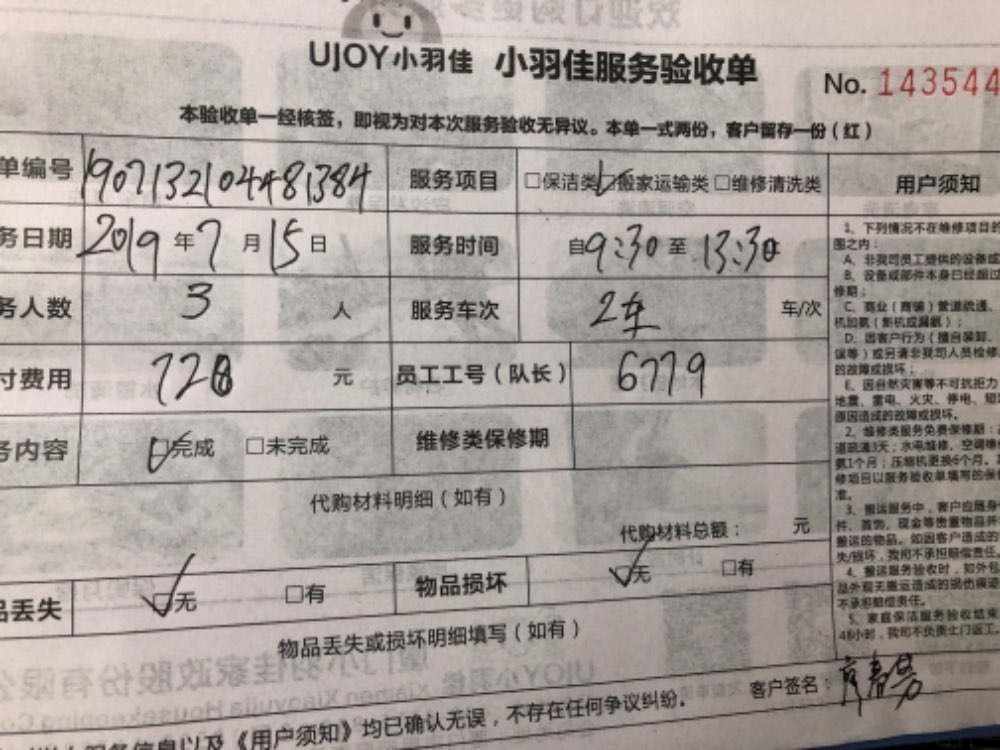 UJOY小羽佳 小羽佳服务验收单
No. 143544
本验收单一经核签，即视为对本次服务验收无异议。本单一式两份，客户留存一份（红）
单编号 1907132104481384 服务项目 □保洁类 ☑搬家运输类 □维修清洗类
务日期 2019年7月15日 服务时间 自9:30至13:30
务人数 3 人 服务车次 2车 车/次
付费用 728 元 员工工号（队长） 6779
务内容 ☑完成 □未完成 维修类保修期
代购材料明细（如有）
代购材料总额： 元
品丢失 ☑无 □有 物品损坏 ☑无 □有
物品丢失或损坏明细填写（如有）
服务信息以及《用户须知》均已确认无误，不存在任何争议纠纷。
客户签名：
用户须知
1、下列情况不在维修项目的
围之内：
A、非我司员工提供的设备或
B、设备或部件本身已经超过
修期；
C、商业（商铺）管道疏通、
机加氨（新机或漏氨）；
D、因客户行为（擅自装卸、
误等）或另请非我司人员检修
的故障或损坏；
E、因自然灾害等不可抗拒力
地震、雷电、火灾、停电、短
原因造成的故障或损坏。
2、维修类服务免费保修期：
道疏通3天；水电维修、空调维
氨1个月；压缩机更换6个月。
修项目以服务验收单填写的保
准。
3、搬运服务中，客户应随身
件、首饰、现金等贵重物品并
搬运的物品。如因客户造成的
失/损坏，我司不承担赔偿责任。
4、搬运服务验收时，如外包
品外观无搬运造成的损伤痕迹
不承担赔偿责任。
5、家庭保洁服务验收结束
48小时，我司不负责上门返工。